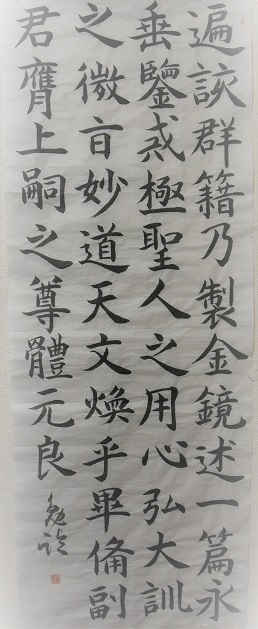 遍該群籍乃製金鏡述一篇永
垂鑒戒極聖人之用心弘大訓
之微旨妙道天文煥乎畢備副
君膺上嗣之尊體元良